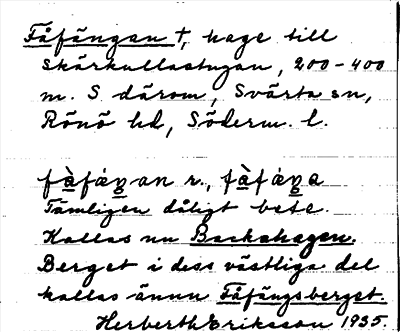 Fåfängan †, hage till
Skärkullastugan, 200-400
m. S därom, Svärta sn,
Rönö hd, Söderm. l.
fàfáŋan r., fàfáŋa
Tämligen dåligt bete.
Kallas nu Backahagen.
Berget i dess västliga del
kallas ännu Fåfängsberget.
Herberth Eriksson 1935.